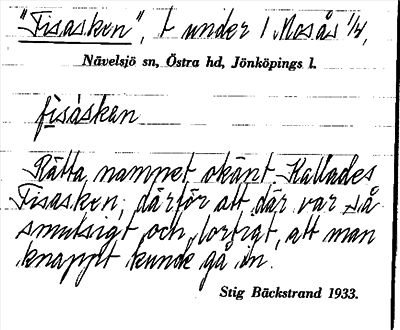 "Fisasken", t under 1 Mosås 1/4,
Nävelsjö sn, Östra hd, Jönköpings l.
fisàskan
Rätta namnet okänt. Kallades
Fisasken, därför att där var så
smutsigt och lortigt, att man
knappt kunde gå in.
Stig Bäckstrand 1933.